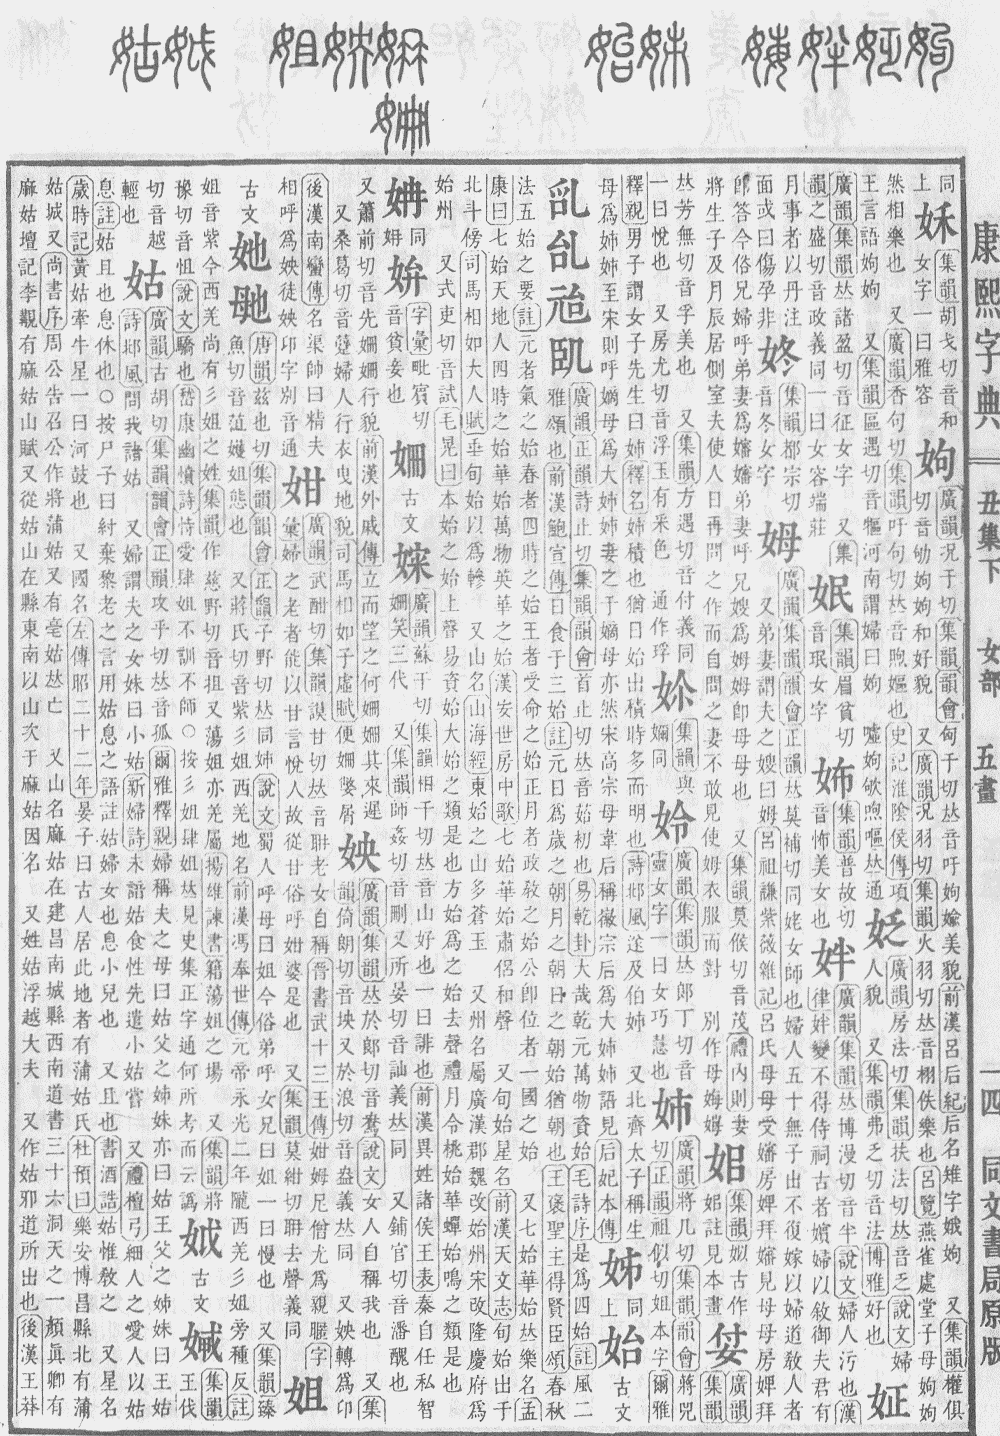 康熙字典 丑集下 女部 五畫 一四 同文書局原版
同上
集韻胡戈切音和女字一曰雅容
姁 廣韻况于切集韻韻會匈于切𠀤音吁姁媮美貌前漢呂后紀后名雉字娥姁 又集韻權俱切音劬姁姁和好貌 又廣韻况羽切集韻火羽切𠀤音栩佚樂也呂覽燕雀處堂子母姁姁
然相樂也 又廣韻香句切集韻吁句切𠀤音煦嫗也史記淮陰侯傳項王言語姁姁 又集韻區遇切 河南謂婦曰姁 噓姁欨煦嘔𠀤通
姂 廣韻房法切集韻扶法切𠀤音乏說文婦人貌 又集韻弗乏切音法博雅好也
姃
廣韻集韻𠀤諸盈切音征女字 又集韻之盛切音政義同一曰女容端莊
姄 集韻眉貧切音珉女字
㚴 集韻普故切音怖美女也
姅 廣韻集韻𠀤博漫切音半說文婦人污也漢律姅變不得侍祠古者嬪婦以敘御夫君有
月事者以丹注面或曰傷孕非
㚵 集韻都宗切音冬女字
姆 廣韻集韻韻會正韻𠀤莫補切同姥女師也婦人五十無子出不復嫁以婦道敎人者 又弟妻謂夫之嫂曰姆呂祖謙紫薇雜記呂氏母母受嬸房婢拜嬸見母母房婢拜
卽答今俗兄婦呼弟妻爲嬸嬸弟妻呼兄嫂爲姆姆卽母母也 又集韻莫候切音茂禮內則妻將生子及月辰居側室夫使人日再問之作而自問之妻不敢見使姆衣服而對 別作母姆
集韻姒古作 註見本畫
廣韻集韻
𠀤芳無切音孚美也 又集韻方遇切音付義同一曰悅也 又房尤切音浮玉有米色 通作琈
集韻與嬭同
姈 廣韻集韻𠀤郎丁切音靈女字一曰女巧慧也
姊 廣韻將几切集韻韻會將兕切正韻祖似切姐本字爾雅
釋親男子謂女子先生曰姊釋名姊積也猶日始出積時多而明也詩邶風遂及伯姊 又北齊太子稱生母爲姊姊至宋則呼嫡母爲大姊姊妻之于嫡母亦然宋高宗母韋后稱徽宗后爲大姊姊語見后妃本傳
姉 同上
始 古文
乿乨兘 廣韻正韻詩止切集韻韻會首止切𠀤音 初也易乾卦大哉乾元萬物資始毛詩序是爲四始註風二雅頌也前漢鮑宣傳日食于三始註元日爲歲之朝月之朝日之朝始猶 也王褒聖主得賢臣頌春秋
法五始之要註元者氣之始春者四時之始王者受命之始正月者政敎之始公卽位者一國之始 又七始華始𠀤樂名孟康曰七始天地人四時之始華始萬物英華之始漢安世房中歌七始華始肅倡和聲 又旬始星名前漢天文志旬始出
北斗傍司馬相如大人賦垂旬始以爲幓 又山名山海經東始之山多蒼玉 又州名屬廣漢郡魏改始州宋改隆慶府爲始州 又式吏切音試毛晃曰本始之始上聲易資始大始之類是也方始爲之始去聲禮月令桃始華蟬始鳴之類是也
姌 同姆
姘 字彙毗賓切音貧妾也
姍 古文 廣韻蘇干切集韻相干切𠀤音山好也一曰誹也前漢異姓諸侯王表秦自任私智姍笑三代 又集韻師姦切音刪又所晏切音訕義𠀤同 又鋪官切音潘醜也
又蕭前切音先姍姍行貌前漢外戚傳立而望之何姍姍其來遲 又桑葛切音躠婦人行衣曳地貌司馬相如子虛賦便姍嫳屑
姎 廣韻集韻𠀤於郎切音鴦說文女人自稱我也 又集韻倚朗切音坱又於浪切音盎義𠀤同 又姎轉爲卬
後漢南蠻傳名渠帥曰精夫相呼爲姎徒姎卬字別音通
姏 廣韻武酣切集韻謨甘切𠀤音 老女自稱晉書武十三王傳姏姆尼僧尤爲親暱字彙婦之老者能以甘言悅人故從甘俗呼姏婆是也 又集韻莫紺切 去聲義同
姐
古文她毑 唐韻茲也切集韻韻會正韻子野切𠀤同姉說文蜀人呼母曰姐今俗弟呼女兄曰姐一曰慢也 又集韻臻魚切音菹嫭姐態也 又蔣氏切音紫彡姐西羌地名前漢馮奉世傳元帝永光二年隴西羌彡姐旁種反註
姐音紫今西羌尚有彡姐之姓集韻作 慈野切音抯又蕩姐亦羌屬揚雄諫書籍蕩姐之場 又集韻將豫切音怚說文驕也嵇康幽憤詩恃愛肆姐不訓不師○按彡姐肆姐𠀤見史集正字通何所考而云譌
古文 集韻王伐切音越 輕也
姑 廣韻古胡切集韻韻會正韻攻乎切𠀤音孤爾雅釋親婦稱夫之母曰姑父之姊妹亦曰姑王父之姊妹曰王姑詩邶風問我諸姑 又婦謂夫之女妹曰小姑新婦詩未諳姑食性先遣小姑嘗 又禮檀弓細人之愛人以姑
息註姑且也息休也○按尸子曰紂棄黎老之言用姑息之語註姑婦女也息小兒也 又且也書酒誥姑惟敎之 又星名歲時記黃姑牽牛星一曰河鼓也 又國名左傳昭二十二年晏子曰古人居此地者有蒲姑氏杜預曰樂安博昌縣北有蒲
姑城又尚書序周公告召公作將蒲姑又有亳姑𠀤亡 又山名麻姑在建昌南城縣西南道書三十六洞天之一顏眞卿有麻姑壇記李覯有麻姑山賦又從姑山在縣東南以山次于麻姑因名 又姓姑浮越大夫 又作姑邪道所出也後漢王莽